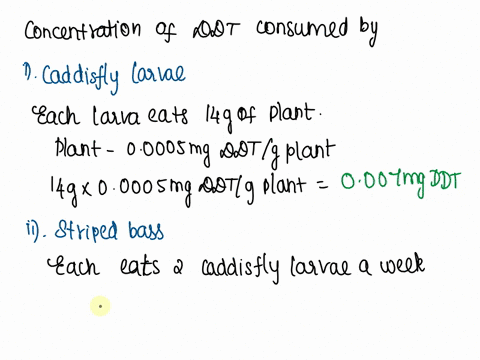 Concentration of DDT consumed by
i). Caddisfly larvae
Each larva eats 14g of Plant.
Plant - 0.0005mg DDT/g plant
14g x 0.0005mg DDT/g plant = 0.007mg DDT
ii). Striped bass
Each eats 2 caddisfly larvae a week